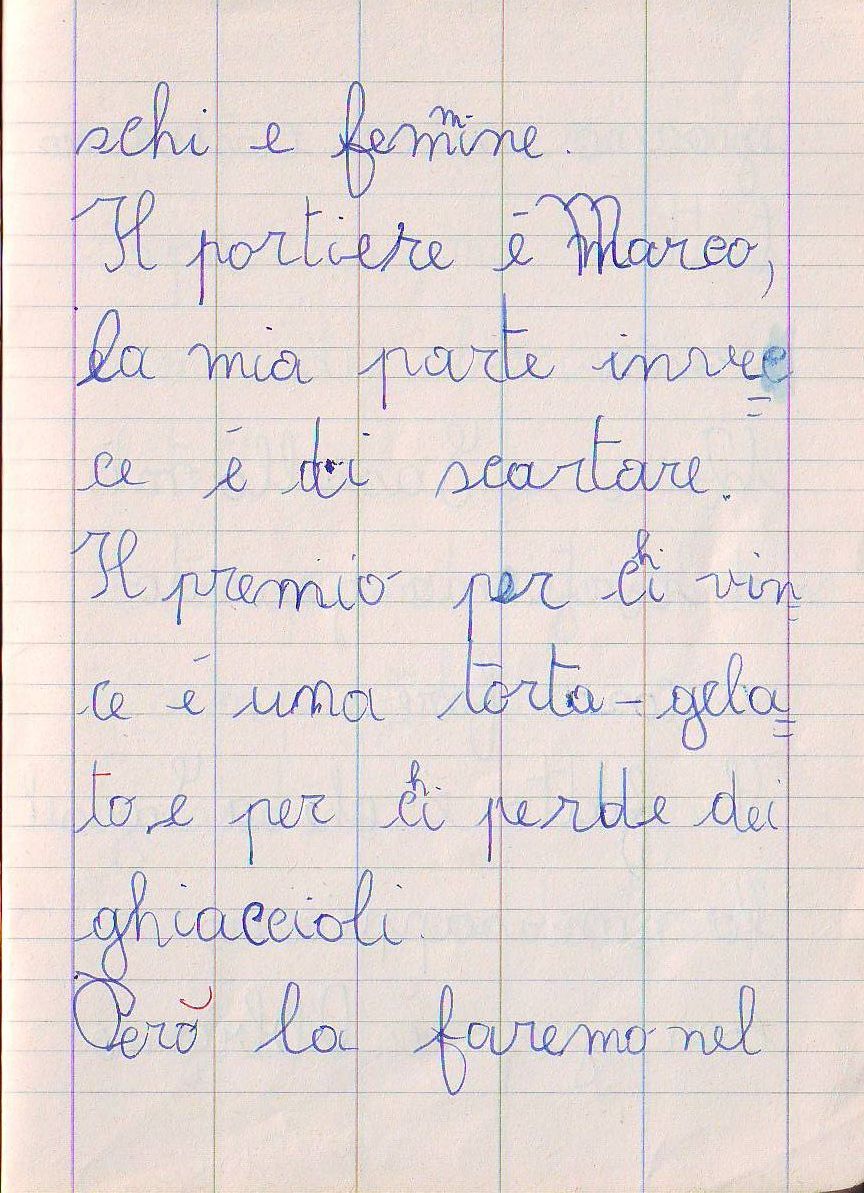 schi e femmine.
Il portiere é Marco,
la mia parte inve=
ce é di scartare.
Il premio per chi vin=
ce é una torta-gela=
to, e per chi perde dei
ghiaccioli.
Però la faremo nel